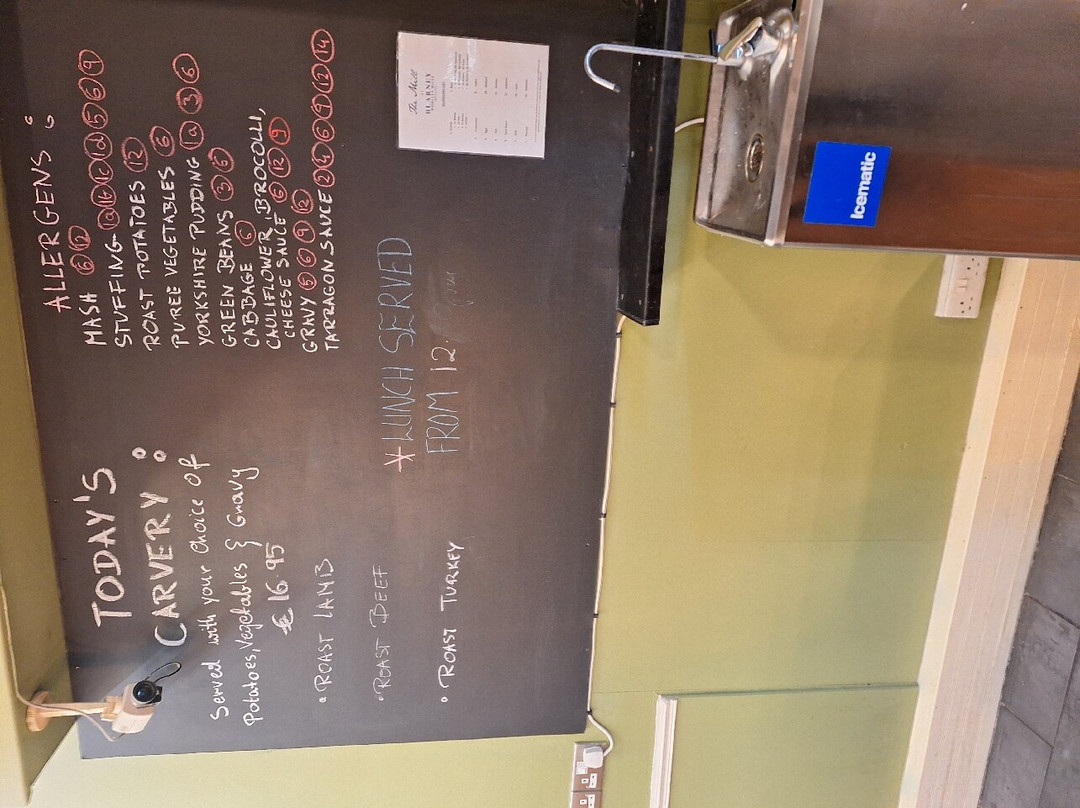 TODAY'S
CARVERY:
Served with your choice of
Potatoes, Vegetables & Gravy
€ 16.95
• ROAST LAMB
• ROAST BEEF
• ROAST TURKEY
ALLERGENS:
MASH 6 12
STUFFING 1a 1b 1c 1d 5 6 9
ROAST POTATOES 12
PUREE VEGETABLES 6
YORKSHIRE PUDDING 1a 3 6
GREEN BEANS 3 6
CABBAGE 6
CAULIFLOWER, BROCOLLI,
CHEESE SAUCE 6 12 9
GRAVY 5 6 9 12
TARRAGON SAUCE 2 4 6 9 12 14
* LUNCH SERVED
FROM 12.
The Mill
KEARNEY
Icematic